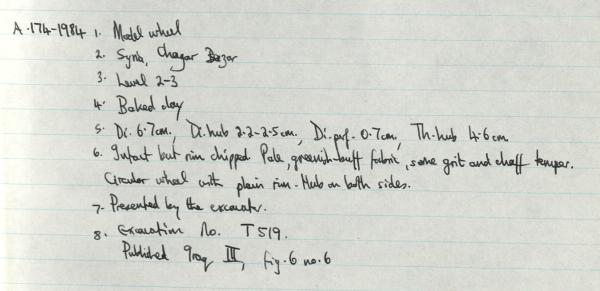 A.174-1984 1. Model wheel
2. Syria, Chagar Bazar
3. Level 2-3
4. Baked clay
5. Di. 6.7cm, Di.hub 2.2-2.5cm, Di.perf. 0.7cm, Th.hub 4.6cm
6. Intact but rim chipped. Pale, greenish-buff fabric, some grit and chaff temper.
Circular wheel with plain rim. Hub on both sides.
7. Presented by the excavator.
8. Excavation No. T519.
Published Iraq III, fig.6 no.6